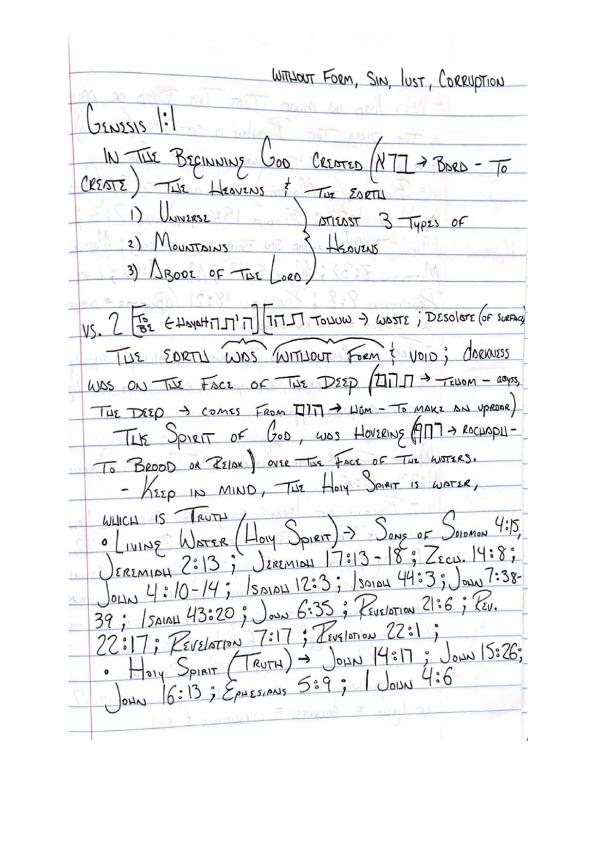 WITHOUT FORM, SIN, LUST, CORRUPTION
GENESIS 1:1
IN THE BEGINNING GOD CREATED (ברא → BARA - TO
CREATE) THE HEAVENS & THE EARTH
1) UNIVERSE
2) MOUNTAINS
3) ABODE OF THE LORD
ATLEAST 3 TYPES OF
HEAVENS
VS. 2 [TO BE ← HAYAH היתה] [תהו TOHUW → WASTE; DESOLATE (OF SURFACE)
THE EARTH WAS WITHOUT FORM & VOID; DARKNESS
WAS ON THE FACE OF THE DEEP (תהם → TEHOM - ABYSS,
THE DEEP → COMES FROM הום → HUM - TO MAKE AN UPROAR)
THE SPIRIT OF GOD, WAS HOVERING (רחף → RACHAPH -
TO BROOD OR RELAX) OVER THE FACE OF THE WATERS.
- KEEP IN MIND, THE HOLY SPIRIT IS WATER,
WHICH IS TRUTH
• LIVING WATER (HOLY SPIRIT) → SONG OF SOLOMON 4:15,
JEREMIAH 2:13; JEREMIAH 17:13-18; ZECH. 14:8;
JOHN 4:10-14; ISAIAH 12:3; ISAIAH 44:3; JOHN 7:38-
39; ISAIAH 43:20; JOHN 6:35; REVELATION 21:6; REV.
22:17; REVELATION 7:17; REVELATION 22:1;
• HOLY SPIRIT (TRUTH) → JOHN 14:17; JOHN 15:26;
JOHN 16:13; EPHESIANS 5:9; 1 JOHN 4:6